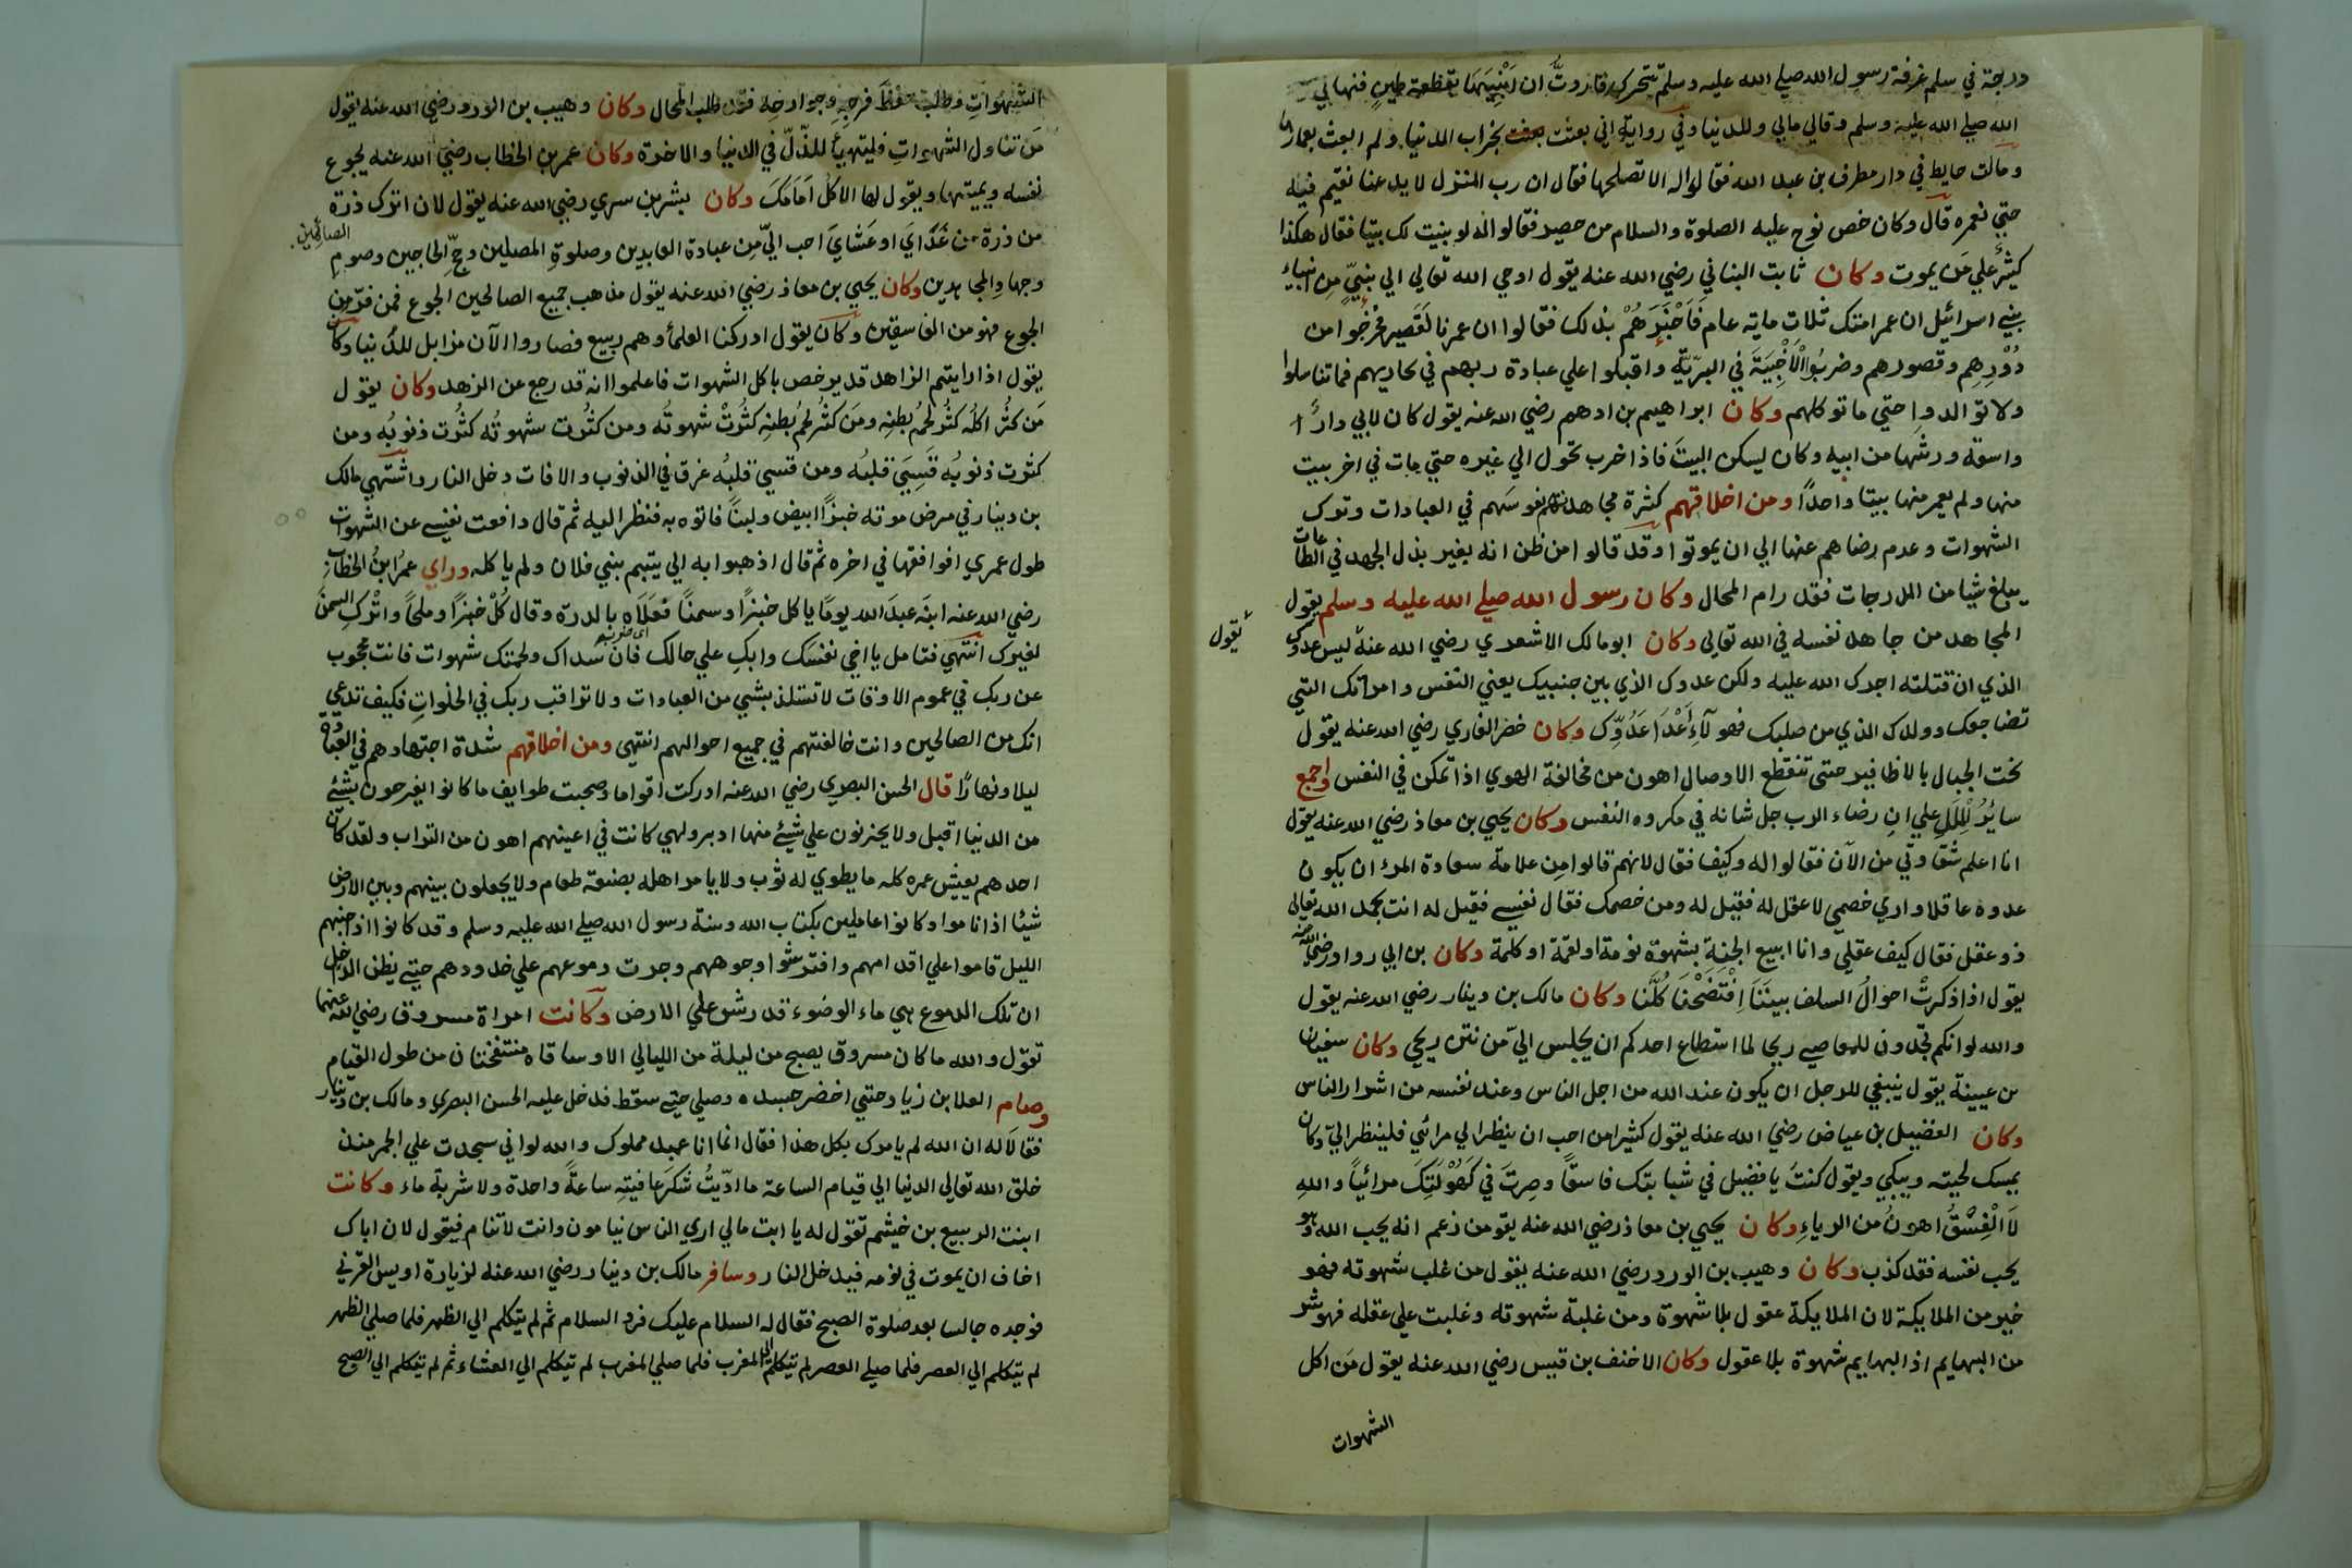 درجة في سلم غرفة رسول الله صلي الله عليه وسلم تتحرك فاردتُّ ان اَبْنِيَهَا بقطعة طينٍ فنهاني
الله صلي الله عليه وسلم وقالي مالي وللدنيا وفي رواية اني بعثت بخراب الدنيا ولم ابعث بعمارها
ومالت حايط في دار مطرف بن عبد الله فقالوا له الا تصلحها فقال ان رب المنزل لا يدعنا نقيم فيه
حتي نعمره قال وكان خص نوح عليه الصلوة والسلام من حصير فقالوا له لو بنيت لك بيتا فقال هكذا
كثيرٌ علي مَن يموت وكان ثابت البناني رضي الله عنه يقول اوحي الله تعالي الي نبيٍّ مِن انبياء
بني اسرائيل ان عمر امتك ثلاث ماية عام فَاَخْبَرَهُمْ بذلك فقالوا ان عمرنا لَقَصير فخرجُوا من
دُوْرِهِم وقصورهم وضربُوا الْاَخْبِيَةَ في البرّيّةِ واقبلوا علي عبادة ربهم في محاريبهم فما تناسلوا
ولا توالدوا حتي ماتو كلهم وكان ابراهيم بن ادهم رضي الله عنه يقول كان لابي دارًا
واسعة ورثها من ابيه وكان يسكن البيتَ فاذا خرب تحول الي غيره حتي مات في اخر بيت
منها ولم يعمر منها بيتا واحدًا ومن اخلاقهم كثرة مجاهدتهم نفوسَهم في العبادات وترك
الشهوات وعدم رضاهم عنها الي ان يموتوا وقد قالوا من ظن انه بغير بذل الجهد في الطاعات
يبلغ شيا من الدرجات فقد رام المحال وكان رسول الله صلي الله عليه وسلم يقول
المجاهد من جاهد نفسه في الله تعالي وكان ابو مالك الاشعري رضي الله عنه ليس عدوك
يقول
الذي ان قتلته اجرك الله عليه ولكن عدوك الذي بين جنبيك يعني النفس وامراتك التي
تضاجعك وولدك الذي من صلبك فهولآءِ أَعْدَا عَدُوِّك وكان خضر القاري رضي الله عنه يقول
نحت الجبال بالاظافير حتي تنقطع الاوصال اهون من مخالفة الهوي اذا تمكن في النفس واجمع
سائرُ الْمِلَلِ علي ان رضاء الرب جل شانه في مكروه النفس وكان يحيي بن معاذ رضي الله عنه يقول
انا اعلم شقاوتي من الآن فقالوا له وكيف فقال لانهم قالوا مِن علامة سعادة المرء ان يكون
عدوه عاقلا واري خصمي لا عقل له فقيل له ومن خصمك فقال نفسي فقيل له انت بحمد الله تعالي
ذو عقل فقال كيف عقلي وانا ابيع الجنة بشهوة نومة او لقمة او كلمة وكان بن ابي رواد رضي الله عنه
يقول اذا ذكرتْ احوالُ السلف بيننَا اِفْتَضَحْنَا كُلُّنا وكان مالك بن دينار رضي الله عنه يقول
والله لو انكم تجدون للمعاصي ريحا لما استطاع احدكم ان يجلس اليَّ من نتن ريحي وكان سفيان
بن عيينة يقول ينبغي للرجل ان يكون عند الله من اجل الناس وعند نفسه من اشرار الناس
وكان الفضيل بن عياض رضي الله عنه يقول كثيرا من احب ان ينظر الي مرائي فلينظر اليّ وكان
يمسك لحيته ويبكي ويقول كنتَ يا فضيل في شبابتك فاسقًا وصرتَ في كَهُوْلَتِكَ مرائيًا واللهِ
لَا الْفِسْقُ اهونُ من الرياءِ وكان يحيي بن معاذ رضي الله عنه يقو من زعم انه يحب الله وهو
يحب نفسه فقد كذب وكان وهيب بن الورد رضي الله عنه يقول من غلب شهوته فهو
خير من الملايكة لان الملايكة عقول بلا شهوة ومن غلبة شهوته وغلبت علي عقله فهو شر
من البهايم اذ البهايم شهوة بلا عقول وكان الاخنف بن قيس رضي الله عنه يقول مَن اكل
الشهوات
الشهواتِ وطلب حفظَ فرجِهِ وجوارحِهِ فقد طلب المحال وكان وهيب بن الورد رضي الله عنه يقول
مَن تناول الشهواتِ فليتهيأ للذّلّ في الدنيا والاخرة وكان عمر بن الخطاب رضي الله عنه يجوع
نفسه ويميتها ويقول لها الاكل اَمَامَكَ وكان بشر بن سري رضي الله عنه يقول لان اترك ذرة
من ذرة من غَدَايَ او عَشَايَ احب اليّ مِن عبادة العابدين وصلوةِ المصلين وحجّ الحاجين وصومِ الصائِمين
وجهادِ المجاهدين وكان يحيي بن معاذ رضي الله عنه يقول مذهب جميع الصالحين الجوع فمن فرّ مِن
الجوع فهو من الفاسقين وكان يقول ادركنا العلماء وهم ربيع فصاروا الآن مزابل للدنيا وكان
يقول اذا رايتم الزاهد قد يرخص باكل الشهوات فاعلموا انه قد رجع عن الزهد وكان يقول
مَن كثُر اكلُه كثُر لحمُ بُطنِه ومَن كثُر لحمُ بُطنِهِ كثُرتْ شهوتُه ومن كثُرت شهوتُه كثُرت ذنوبُه ومن
كثرت ذنوبُه قَسِيَ قلبُه ومن قسي قلبُه غرق في الذنوب والافات دخل النار واشتهي مالك
بن دينار في مرض موته خبزًا ابيض ولبنًا فاتوه به فنظر اليه ثم قال دافعت نفسي عن الشهوات
طول عمري افوافقها في اخره ثم قال اذهبوا به الي يتيم بني فلان ولم ياكله وراي عمرُ ابنُ الخطاب
رضي الله عنه ابنَه عبدَ الله يومًا ياكل خبزًا وسمنًا فعَلَاه بالدرّه وقال كُلْ خبزًا وملحًا واتْركِ السمنَ
لغيرك انتهي فتامل يا اخي نفسك وابكِ علي حالك فان سداك ولحمتك شهوات فانت محجوب
عن ربك في عموم الاوقات لا تستلذ بشي من العبادات ولا تراقب ربك في الخلواتِ فكيف تدعي
انك من الصالحين وانت خالفتهم في جميع احوالهم انتهي ومن اخلاقهم شدة اجتهادهم في العبادة
ليلا ونهارًا قال الحسن البصري رضي الله عنه ادركت اقواما وصحبت طوايف ما كانوا يفرحون بشئ
من الدنيا اقبل ولا يحزنون علي شيئ منها ادبر ولهي كانت في اعينهم اهون من التراب ولقد كان
احدهم يعيش عمره كله ما يطوي له ثوب ولا يامر اهله بصنعة طعام ولا يجعلون بينهم وبين الارض
شيًا اذا ناموا وكانوا عاملين بكتاب الله وسنة رسول الله صلي الله عليه وسلم وقد كانوا اذا جنهم
الليل قاموا علي اقدامهم وافترشوا وجوههم وجرت دموعهم علي خدودهم حتي يظن الداخل
ان تلك الدموع هي ماء الوضوء قد رش علي الارض وكانت امراة مسروق رضي الله عنهما
تقول والله ما كان مسروق يصبح من ليلة من الليالي الا وساقاه منتفختان من طول القيام
وصام العلا بن زياد حتي اخضر جسده وصلي حتي سقط فدخل عليه الحسن البصري ومالك بن دينار
فقالَا له ان الله لم يامرك بكل هذا فقال انما انا عبد مملوك والله لو اني سجدت علي الجمر منذ
خلق الله تعالي الدنيا الي قيام الساعة ما ادّيتُ شكرَ عافيتِه ساعةً واحدة ولا شربة ماء وكانت
ابنت الربيع بن خيثم تقول له يا ابت مالي اري الناس نيامون وانت لا تنام فيقول لان اباك
اخاف ان يموت في نومه فيدخل النار وسافر مالك بن دينار رضي الله عنه لزيارة اويس القرني
فوجده جالسا بعد صلوة الصبح فقال له السلام عليك فرد السلام ثم لم يتكلم الي الظهر فلما صلي الظهر
لم يتكلم الي العصر فلما صلي العصر لم يتكلم الي المغرب فلما صلي المغرب لم يتكلم الي العشاء ثم لم يتكلم الي الصبح